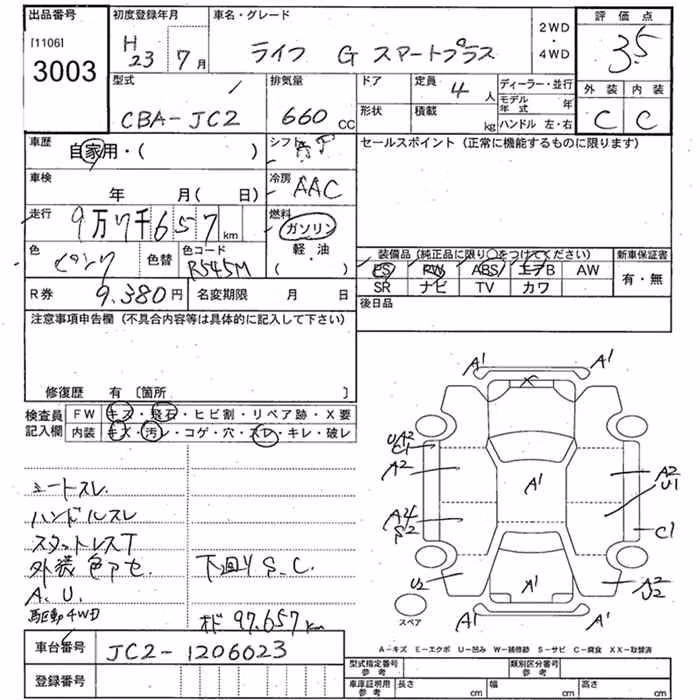 出品番号
[1106]
3003
初度登録年月
H 23 7月
車名・グレード
ライフ G スマートプラス
2WD
・
4WD
評価点
3.5
外装 内装
C C
型式
CBA-JC2
排気量
660 CC
ドア
定員 4人
形状
積載 kg
ディーラー・並行
モデル年式 年
ハンドル 左・右
車歴
自家用・( )
シフト
セールスポイント（正常に機能するものに限ります）
車検
年 月(日)
冷房
AAC
走行
9万7千657km
燃料
ガソリン
軽・油
( )
色
ピンク
色替
色コード
R545M
装備品（純正品に限り○をつけてください）
PS PW ABS エアB AW
SR ナビ TV カワ
新車保証書
有・無
R券 9,380円
名変期限 月 日
後日品
注意事項申告欄（不具合内容等は具体的に記入して下さい）
修復歴 有〔箇所 〕
検査員記入欄
FW キズ・飛石・ヒビ割・リペア跡・X要
内装 キズ・汚レ・コゲ・穴・スレ・キレ・破レ
シートスレ
ハンドルスレ
スタットレスT
外装色アセ.
A.U.
駆動4WD
下回りS.C.
メド97.657km
A1 A1
UA2
C1
A2
A2
U1
A1
C1
U2
A1
A1 A1
スペア
A-キズ E-エクボ U-凹み W-補修跡 S-サビ C-腐食 XX-取替済
車台番号 JC2-1206023
登録番号
型式指定番号
参考
類別区分番号
参考
車庫証明用
参考
長さ cm 幅 cm 高さ cm